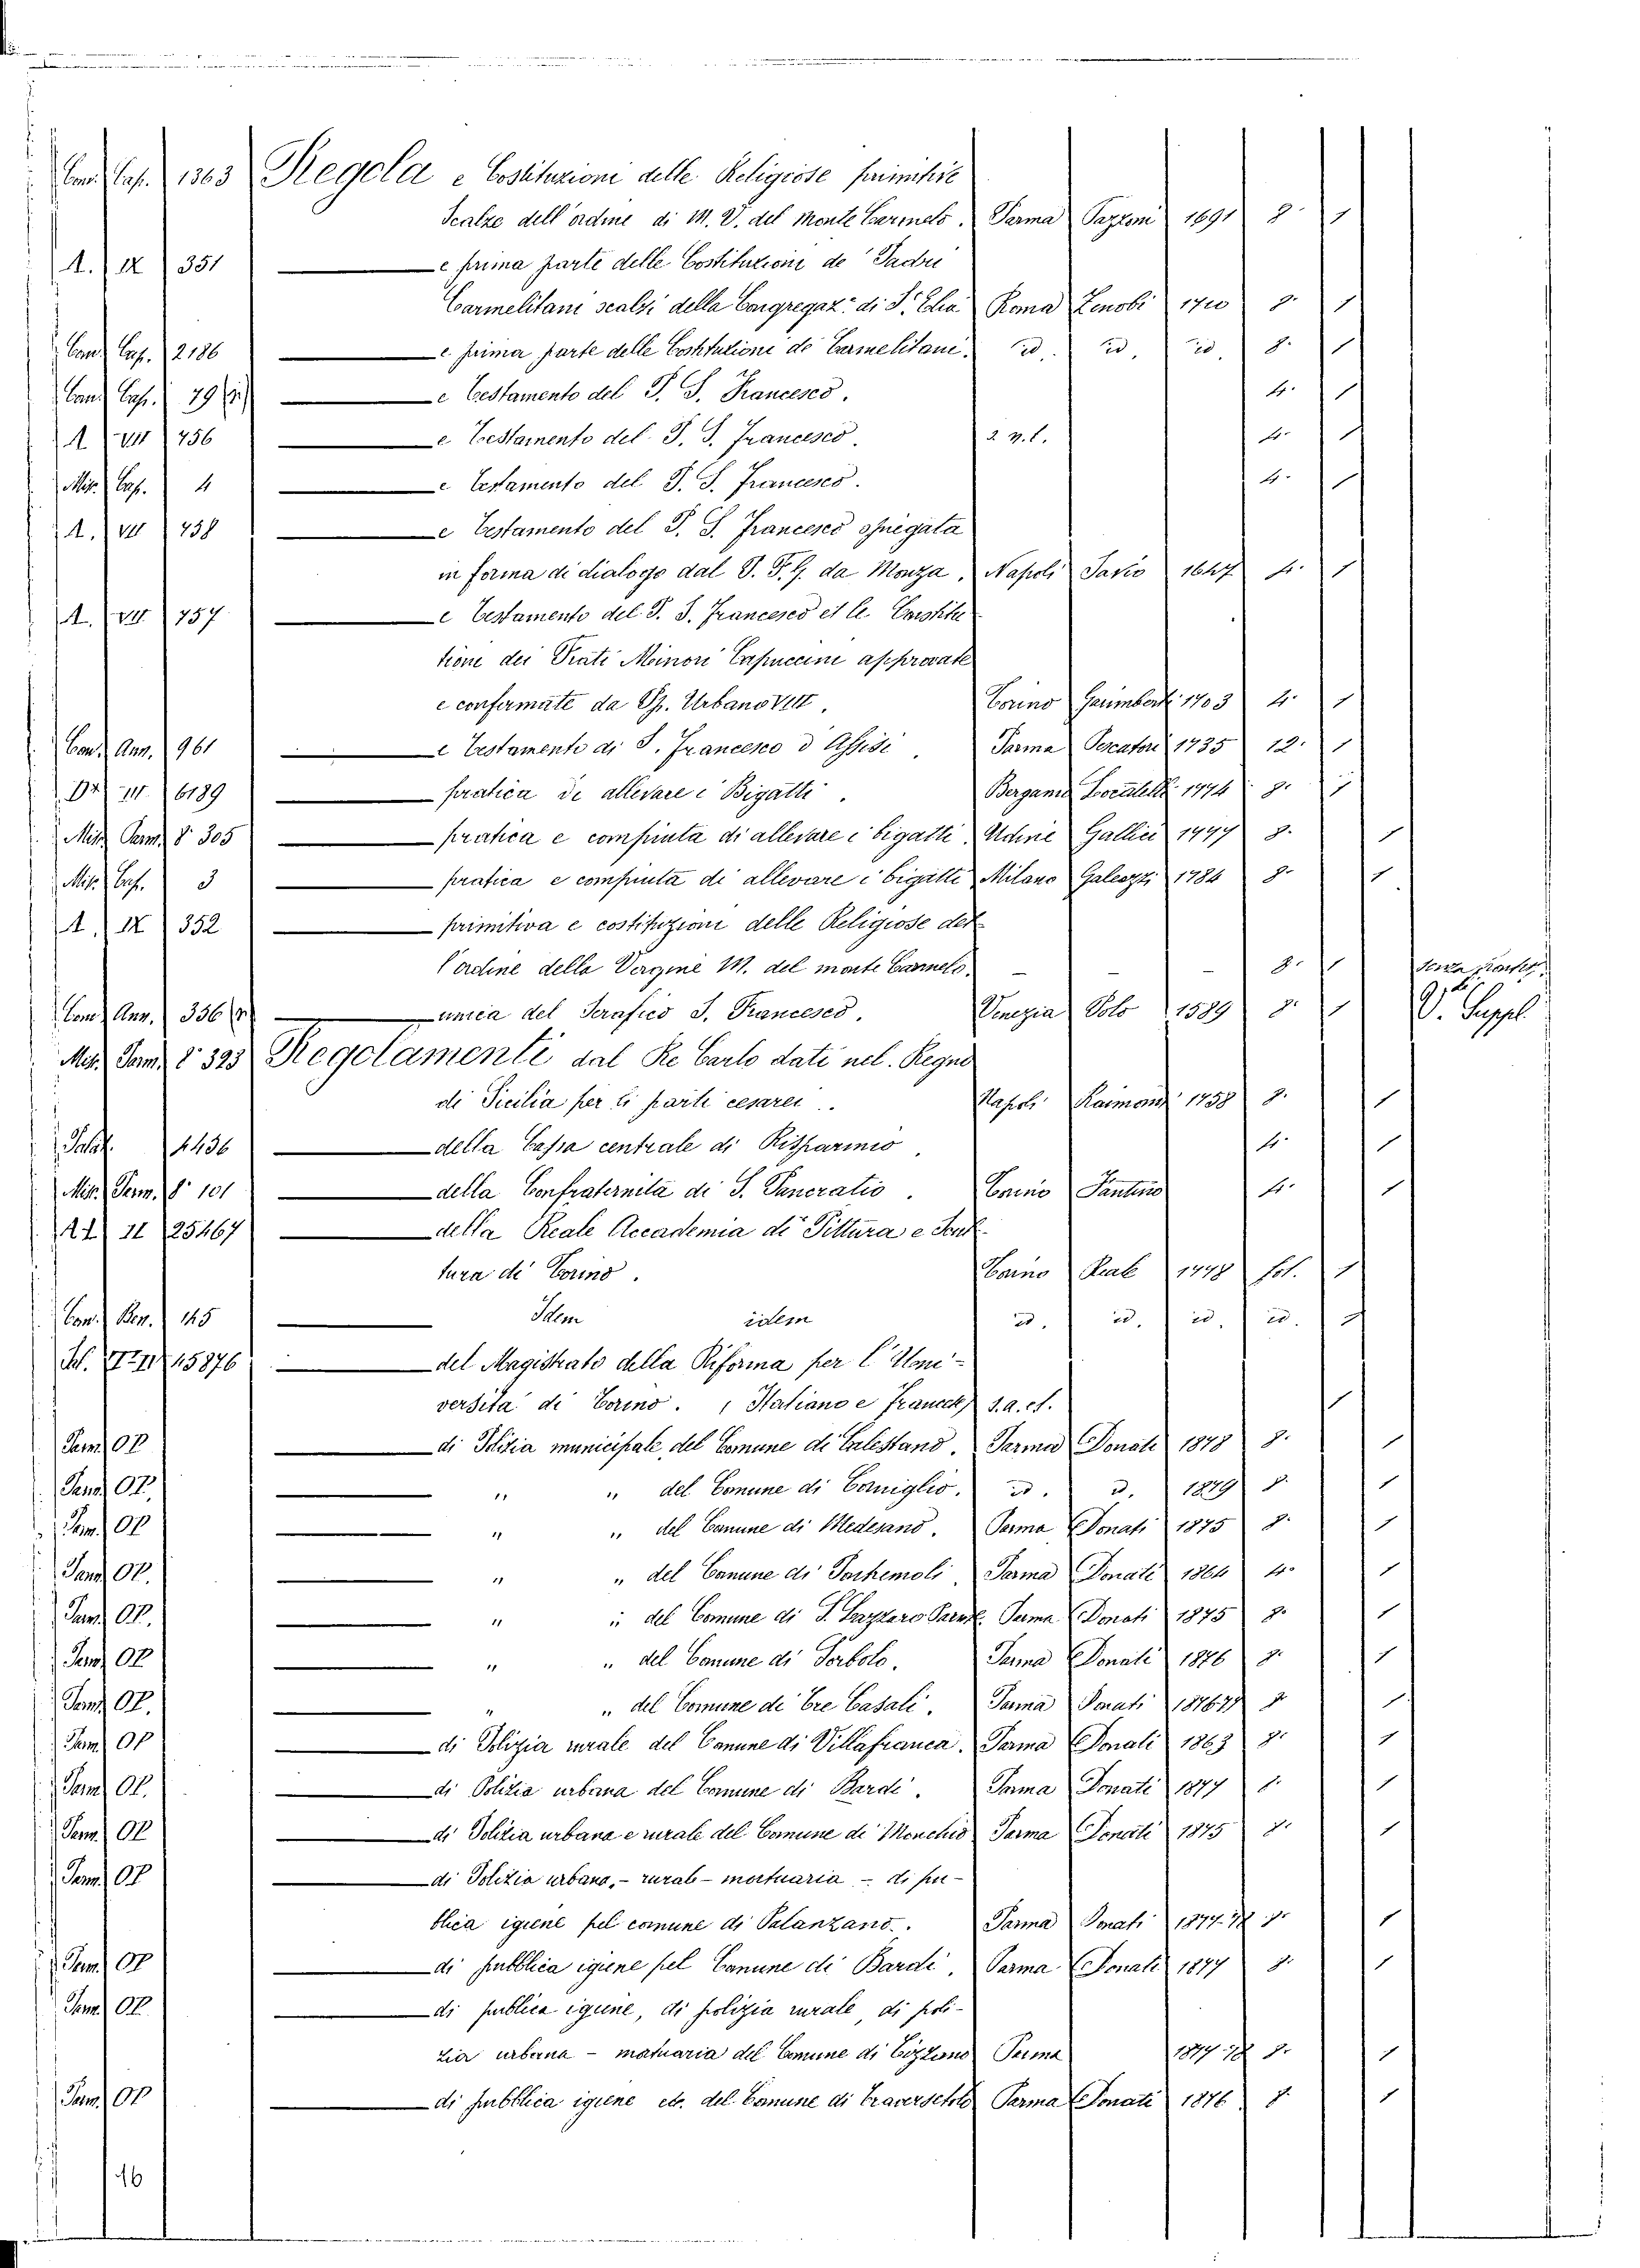 Con. Cap. 1363 Regola e Costituzioni delle Religiose primitive
Scalze dell'ordine di M. V. del Monte Carmelo. Parma Pazzoni 1691 8. 1
A. IX 351 — e prima parte delle Costituzioni de' Padri
Carmelitani scalzi della Congregaz: di S. Elia Roma Zenobi 1710 8. 1
Con. Cap. 2186 — e prima parte delle Costituzioni de' Carmelitani. id. id. id. 8. 1
Con. Cap. 79 — e Testamento del P. S. Francesco. 4. 1
A VIII 756 — e Testamento del P. S. Francesco. 4. 1
Mis. Cap. 4 — e Testamento del P. S. Francesco. 4. 1
A. VIII 758 — e Testamento del P. S. Francesco spiegata
in forma di dialogo dal P. F. G. da Monza. Napoli Savio 1647 4. 1
A. VIII 757 — e Testamento del P. S. Francesco et le Constitu
tione dei Frati Minori Capuccini approvate
e confermate da Pp. Urbano VIII. Torino 1703 4. 1
Con. Ann. 961 — e Testamento di S. Francesco d'Assisi. Parma Pescatori 1735 12. 1
6189 — pratica di allevare i Bigatti. Bergamo Locatelli 1774 8. 1
Mis. Parm. 8° 305 — pratica e compiuta di allevare i bigatti. Udine Gallici 1777 8. 1
Mis. Cap. 3 — pratica e compiuta di allevare i bigatti Milano Galeazzi 1784 8. 1
A. IX 352 — primitiva e costituzioni delle Religiose del
l'ordine della Vergine M. del monte Carmelo. — — 8. 1
Con. Ann. 336 — unica del Serafico S. Francesco. Venezia Polo 1589 8. 1 V. Suppl
Mis. Parm. 8° 323 Regolamenti dal Re Carlo dati nel Regno
di Sicilia per li parti cesarei. Napoli Raimondi 1758 8. 1
Palat. 4436 — della Cassa centrale di Risparmio. 4. 1
Mis. Parm. 8° 101 — della Confraternita di S. Pancratio. Torino Pantino 4. 1
II 25467 — della Reale Accademia di Pittura e Scul
tura di Torino. Torino Reale 1778 fol. 1
Con. Ben. 145 — Idem idem id. id. id. id. 1
15876 — del Magistrato della Riforma per l'Uni-
versità di Torino. (Italiano e Francese) s. a. et. 1
Parm. OP. — di Polizia municipale del Comune di Calestano. Parma Donati 1878 8. 1
Parm. OP. — " " del Comune di Corniglio. id. id. 1879 8. 1
Parm. OP. — " " del Comune di Medesano. Parma Donati 1875 8. 1
Parm. OP. — " " del Comune di Toshemoli. Parma Donati 1864 4. 1
Parm. OP. — " " del Comune di S. Lazzaro Parm.e Parma Donati 1875 8. 1
Parm. OP. — " " del Comune di Torbolo. Parma Donati 1876 8. 1
Parm. OP. — " " del Comune di Tre Casali. Parma Donati 1876.77 8. 1
Parm. OP. — di Polizia rurale del Comune di Villafranca. Parma Donati 1863 8. 1
Parm. OP. — di Polizia urbana del Comune di Bardi. Parma Donati 1877 8. 1
Parm. OP. — di Polizia urbana e rurale del Comune di Monchio Parma Donati 1875 8. 1
Parm. OP. — di Polizia urbana,- rurale - mortuaria - di pu-
blica igiene pel comune di Palanzano. Parma Donati 1877.78 8. 1
Parm. OP. — di pubblica igiene pel Comune di Bardi. Parma Donati 1877 8. 1
Parm. OP. — di publica igiene, di polizia rurale, di poli-
zia urbana - mortuaria del Comune di Cozzano Parma 1877-78 8. 1
Parm. OP. — di pubblica igiene etc. del Comune di Traversetolo Parma Donati 1876 8. 1
16